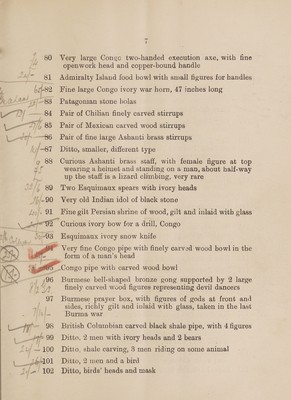 7
80 Very large Congo two-handed execution axe, with fine
openwork head and copper-bound handle
81 Admiralty Island food bowl with small figures for handles
82 Fine large Congo ivory war horn, 47 inches long
83 Patagonian stone bolas
84 Pair of Chilian finely carved stirrups
85 Pair of Mexican carved wood stirrups
86 Pair of fine large Ashanti brass stirrups
87 Ditto, smaller, different type
88 Curious Ashanti brass staff, with female figure at top
wearing a helmet and standing on a man, about half-way
up the staff is a lizard climbing, very rare
89 Two Esquimaux spears with ivory heads
90 Very old Indian idol of black stone
91 Fine gilt Persian shrine of wood, gilt and inlaid with glass
92 Curious ivory bow for a drill, Congo
93 Esquimaux ivory snow knife
Very fine Congo pipe with finely carved wood bowl in the
form of a man's head
95 Congo pipe with carved wood bowl
96 Burmese bell-shaped bronze gong supported by 2 large
finely carved wood figures representing devil dancers
97 Burmese prayer box, with figures of gods at front and
sides, richly gilt and inlaid with glass, taken in the last
Burma war
98 British Columbian carved black shale pipe, with 4 figures
99 Ditto, 2 men with ivory heads and 2 bears
100 Ditto, shale carving, 3 men riding on some animal
101 Ditto, 2 men and a bird
102 Ditto, birds' heads and mask